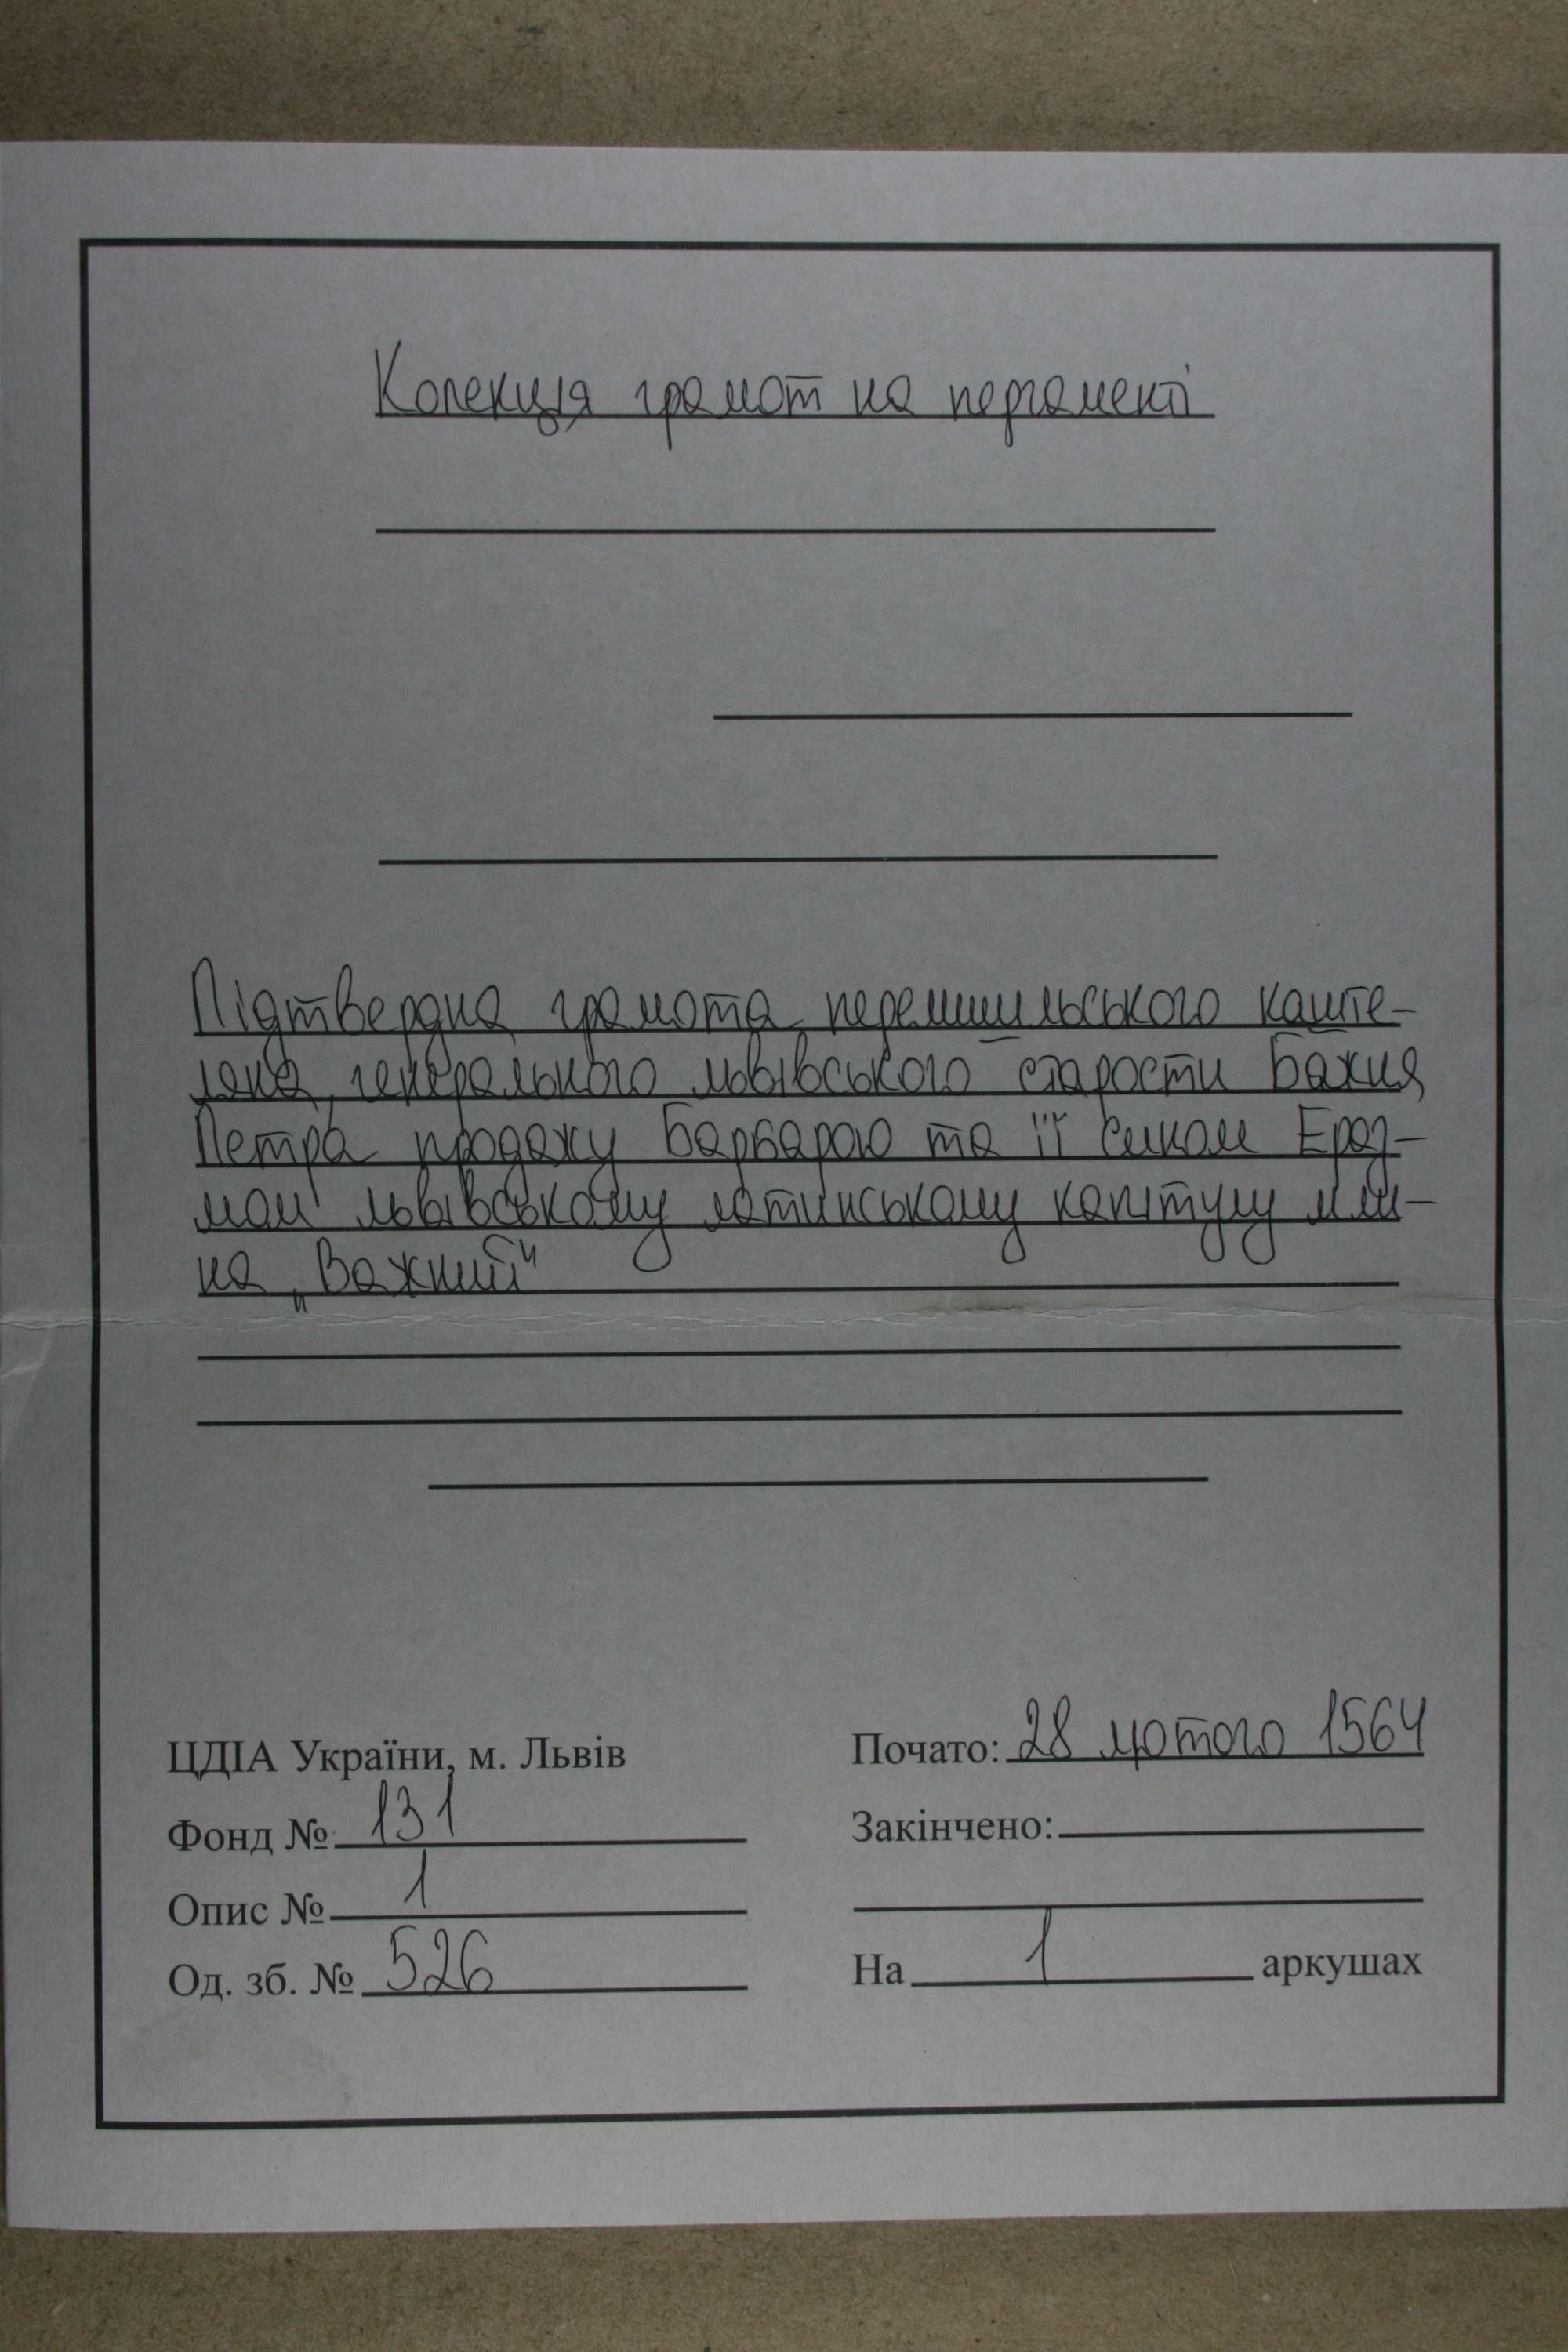 Колекція грамот на пергаменті
Підтвердна грамота перемишльського каште-
ляна, генерального львівського старости Бажня
Петра продажу Барбарою та її сином Ераз-
мом львівському латинському капітулу мли-
на „Важний"
ЦДІА України, м. Львів
Фонд № 131
Опис № 1
Од. зб. № 526
Почато: 28 лютого 1564
Закінчено:
На 1 аркушах